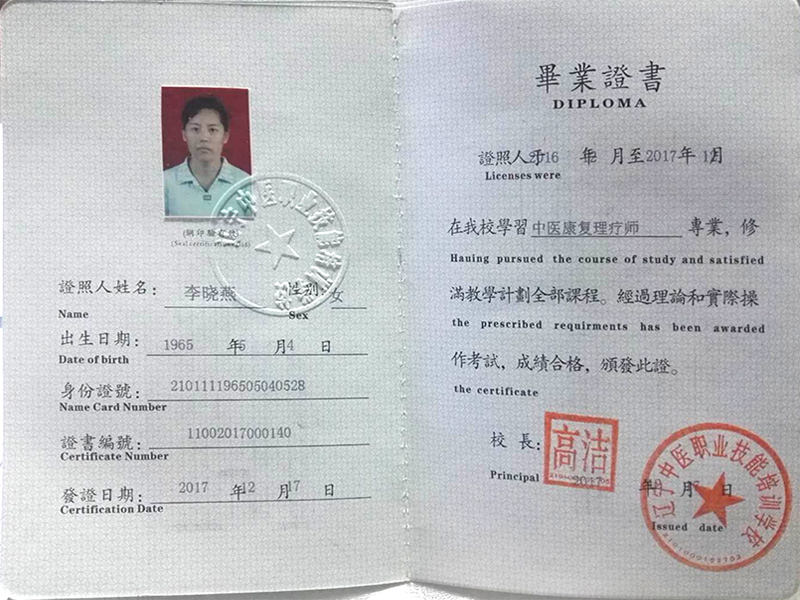 (鋼印驗
證照人姓名: 李晓燕 性别 女
Name Sex
出生日期: 1965 年5 月4 日
Date of birth
身份證號: 210111196505040528
Name Card Number
證書編號: 11002017000140
Certificate Number
發證日期: 2017 年12 月17 日
Certification Date
畢業證書
DIPLOMA
證照人于 16 年 月至2017年 月
Licenses were
在我校學習 中医康复理疗师 專業，修
Hauing pursued the course of study and satisfied
滿教學計劃全部課程。經過理論和實際操
the prescribed requirments has been awarded
作考試，成績合格，頒發此證。
the certificate
校長: 高洁
Principal 2017 年 月 日
Issued date
辽宁中医职业技能培训学校